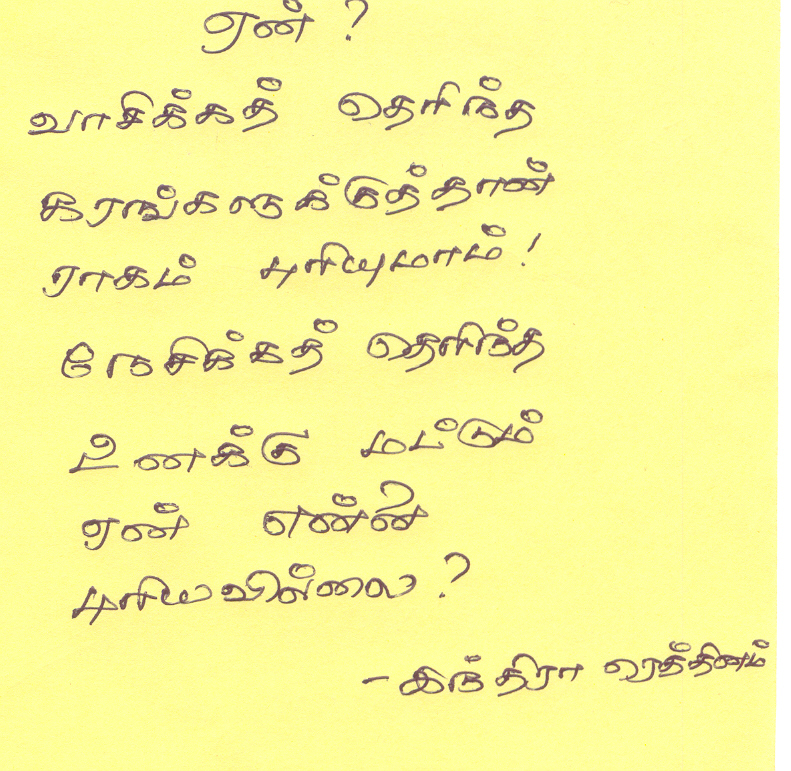 ஏன் ?
வாசிக்கத் தெரிந்த
கரங்களுக்குத்தான்
ராகம் புரியுமாம் !
நேசிக்கத் தெரிந்த
உனக்கு மட்டும்
ஏன் என்னை
புரியவில்லை ?
- இந்திரா ரெத்தினம்